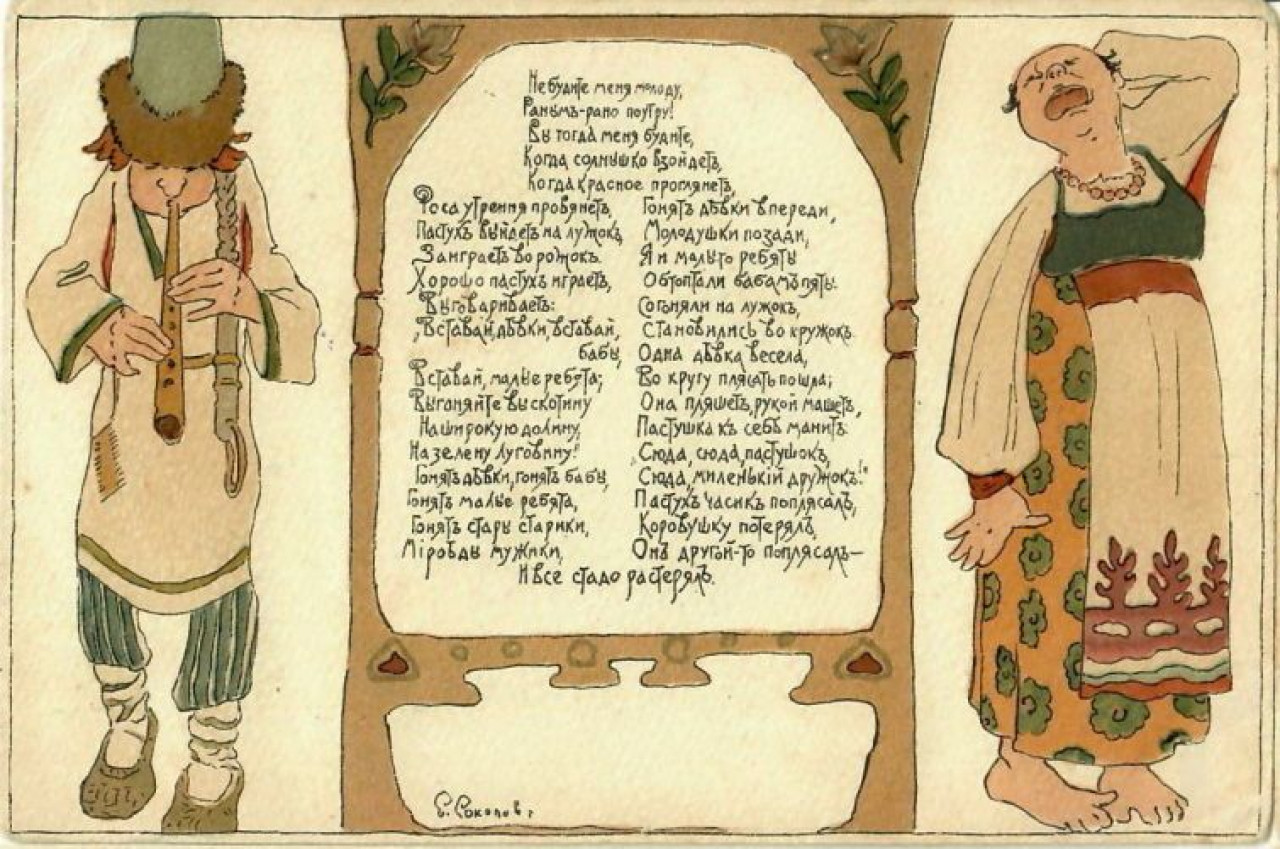 Не будите меня молоду,
Ранымъ-рано поутру!
Вы тогда меня будите,
Когда солнушко взойдетъ,
Когда красное проглянетъ,
Роса утрення провянетъ,
Пастухъ выйдетъ на лужокъ,
Заиграетъ во рожокъ.
Хорошо пастухъ играетъ,
Выговариваетъ:
„Вставай, дѣвки, вставай,
бабы,
Вставай, малые ребята;
Выгоняйте вы скотину
На широкую долину,
На зелену луговину!
Гонятъ дѣвки, гонятъ бабы,
Гонятъ малые ребята,
Гонятъ стары старики,
Мiроѣды мужики,
Гонятъ дѣвки впереди,
Молодушки позади,
Я и малыто ребяты
Обтоптали бабамъ пяты.
Согоняли на лужокъ,
Становились во кружокъ.
Одна дѣвка весела,
Во кругу плясать пошла;
Она пляшетъ, рукой машетъ,
Пастушка къ себѣ манитъ.
„Сюда, сюда, пастушокъ,
Сюда, миленькiй дружокъ!"
Пастухъ часикъ поплясалъ,
Коровушку потерялъ,
Онъ другой-то поплясалъ—
И все стадо растерялъ.
С. Соколовъ